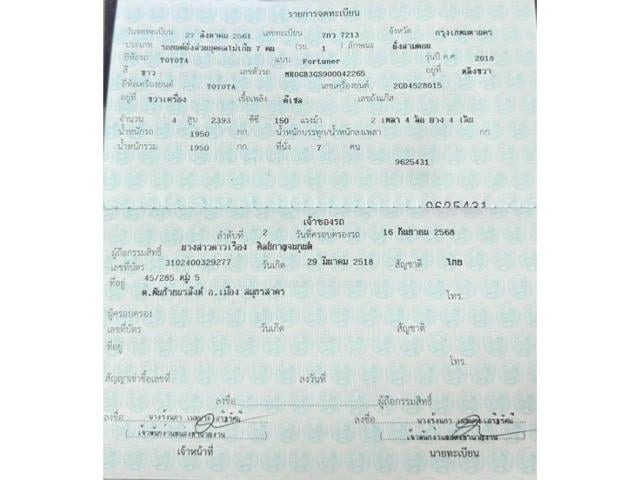 รายการจดทะเบียน
วันจดทะเบียน 27 สิงหาคม 2561 เลขทะเบียน 7กว 7213 จังหวัด กรุงเทพมหานคร
ประเภท รถยนต์นั่งส่วนบุคคลไม่เกิน 7 คน (รย. 1 ) ลักษณะ นั่งสามตอน
ยี่ห้อรถ TOYOTA แบบ Fortuner รุ่นปี ค.ศ. 2018
สี ขาว เลขตัวรถ MR0GB3GS900042265 อยู่ที่ คลังขวา
ยี่ห้อเครื่องยนต์ TOYOTA เลขเครื่องยนต์ 2GD4528015
อยู่ที่ ขวาเครื่อง เชื้อเพลิง ดีเซล เลขถังแก๊ส
จำนวน 4 สูบ 2393 ซีซี 150 แรงม้า 2 เพลา 4 ล้อ ยาง 4 เส้น
น้ำหนักรถ 1950 กก. น้ำหนักบรรทุก/น้ำหนักลงเพลา กก.
น้ำหนักรวม 1950 กก. ที่นั่ง 7 คน
9625431
9625431
เจ้าของรถ
ลำดับที่ 2 วันที่ครอบครองรถ 16 กันยายน 2568
ผู้ถือกรรมสิทธิ์ นางสาวดาวเรือง
เลขที่บัตร 3102400329277 วันเกิด 29 มีนาคม 2518 สัญชาติ ไทย
ที่อยู่ 45/285 หมู่ 5
ต.พันท้ายนรสิงห์ อ.เมือง สมุทรสาคร โทร.
ผู้ครอบครอง
เลขที่บัตร วันเกิด สัญชาติ
ที่อยู่
โทร.
สัญญาเช่าซื้อเลขที่ ลงวันที่
ลงชื่อ ผู้ถือกรรมสิทธิ์
ลงชื่อ ลงชื่อ
(เจ้าพนักงานขนส่งชำนาญงาน) (เจ้าพนักงานขนส่งชำนาญงาน)
เจ้าหน้าที่ นายทะเบียน